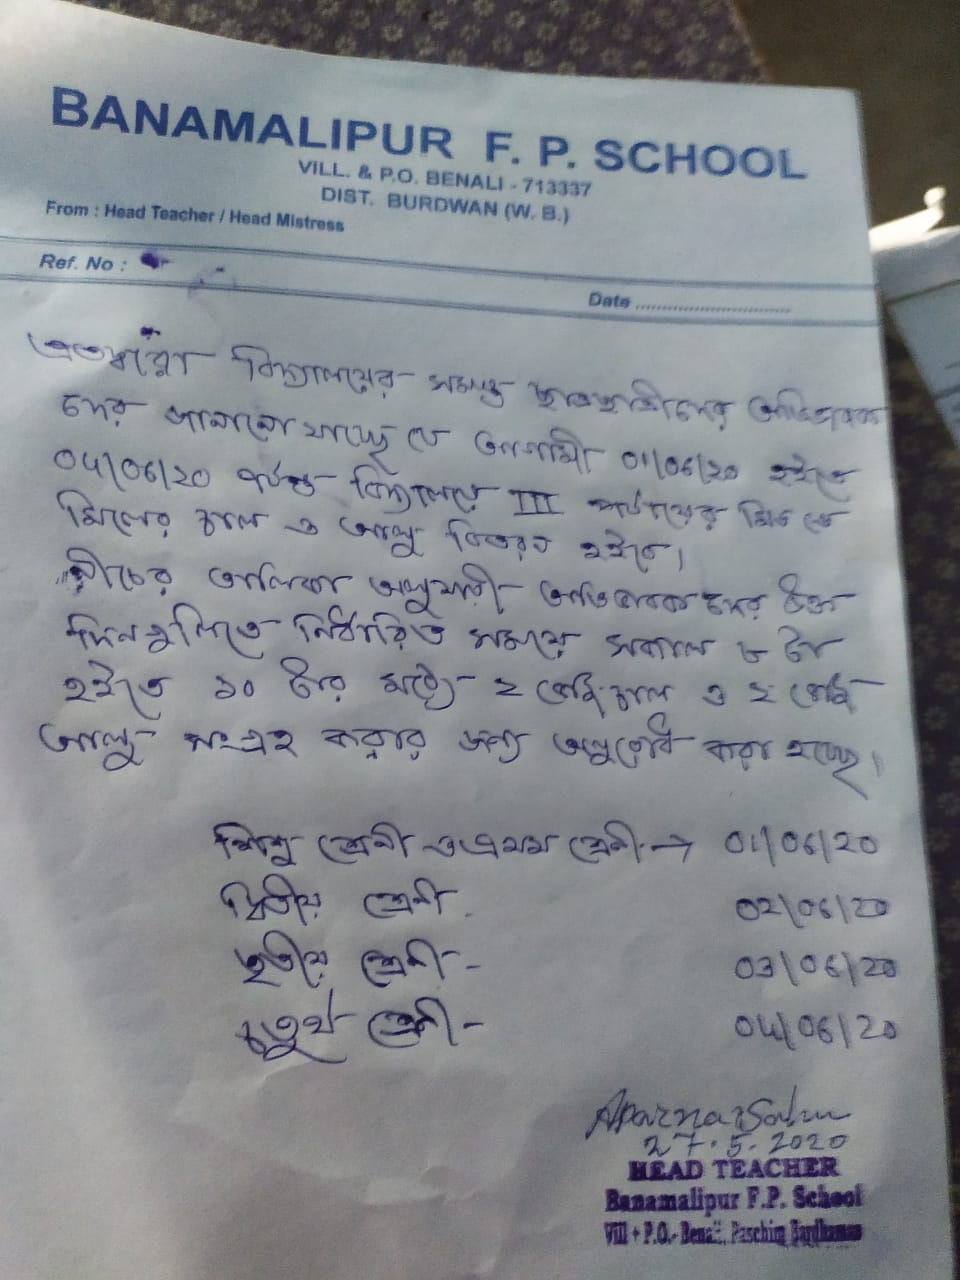 BANAMALIPUR F. P. SCHOOL
VILL. & P.O. BENALI - 713337
DIST. BURDWAN (W. B.)
From : Head Teacher / Head Mistress
Ref. No :
Date ..............................
এতদ্বারা বিদ্যালয়ের সমস্ত ছাত্রছাত্রীদের অভিভাবক
দের জানানো যাচ্ছে যে আগামী 01/06/20 হইতে
04/06/20 পর্যন্ত বিদ্যালয়ে III পর্যায়ের মিড ডে
মিলের চাল ও আলু বিতরণ হইবে।
নীচের তালিকা অনুযায়ী অভিভাবকদের উক্ত
দিনগুলিতে নির্ধারিত সময়ে সকাল ৮ টা
হইতে ১০ টার মধ্যে ২ কেজি চাল ও ২ কেজি
আলু সংগ্রহ করার জন্য অনুরোধ করা হচ্ছে।
শিশু শ্রেনী ও প্রথম শ্রেনী → 01/06/20
দ্বিতীয় শ্রেনী 02/06/20
তৃতীয় শ্রেনী - 03/06/20
চতুর্থ শ্রেনী - 04/06/20
Aparna Sahu
27.5.2020
HEAD TEACHER
Banamalipur F.P. School
Vill + P.O.- Benali, Paschim Bardhaman